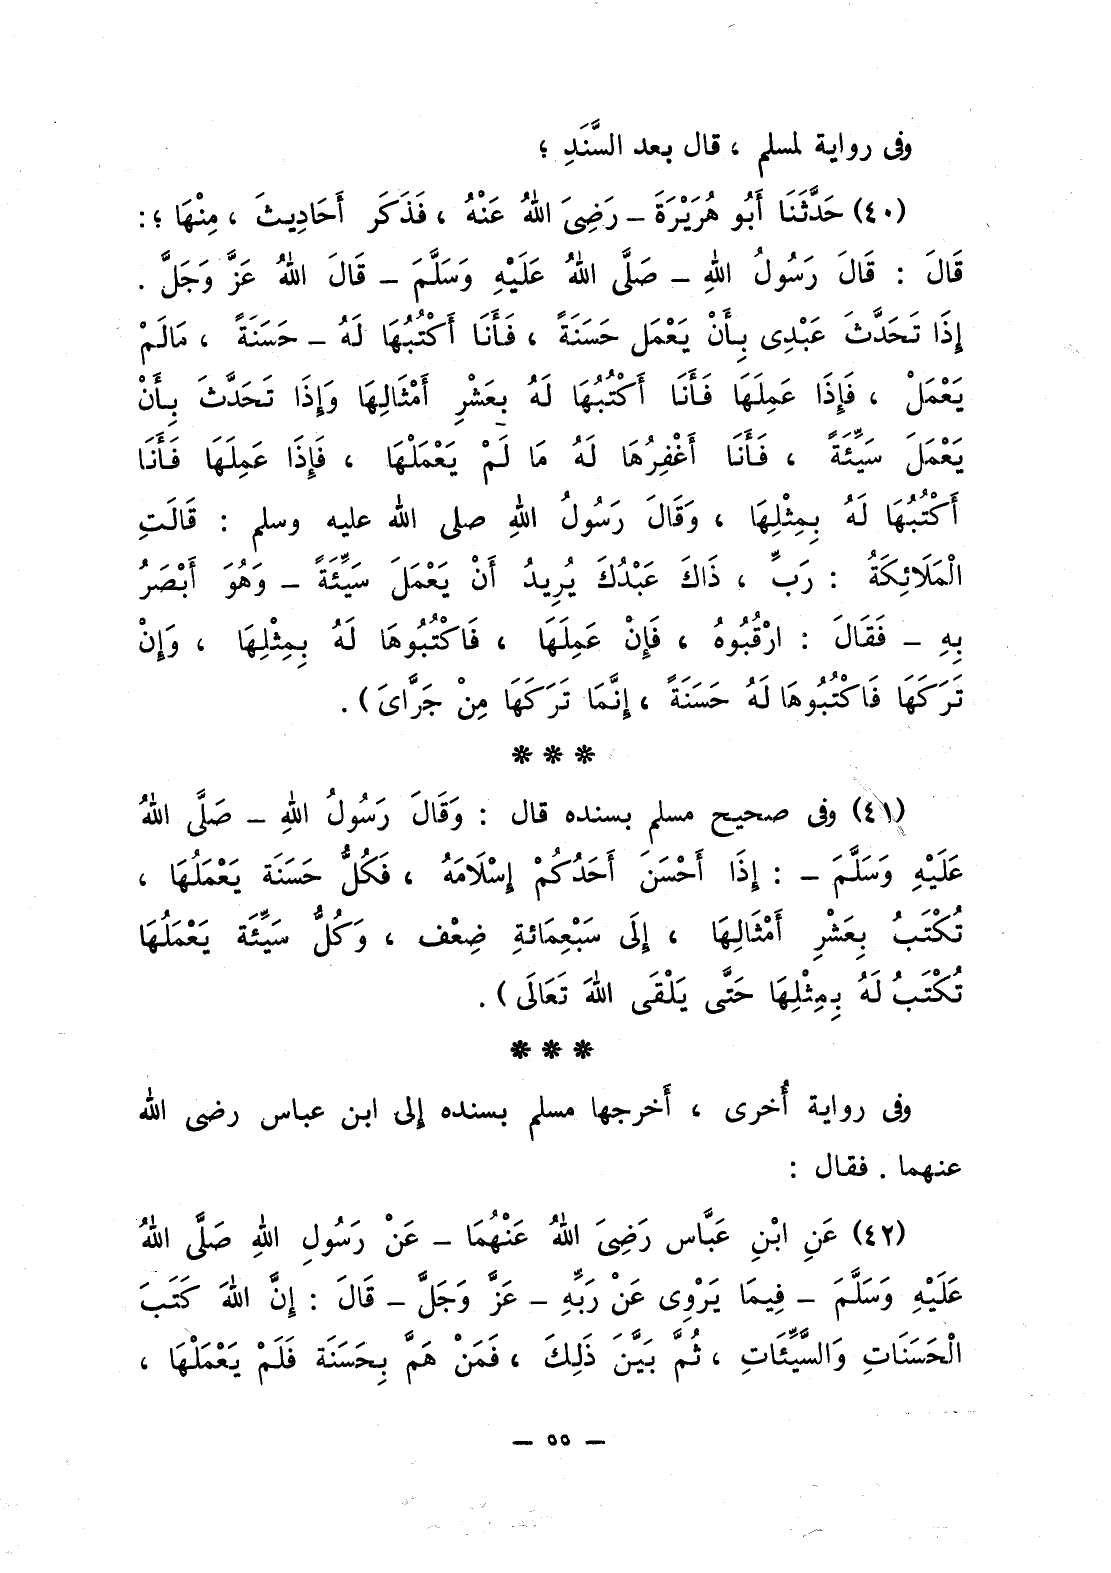 وفى رواية لمسلم ، قال بعد السَّنَدِ ؛
(٤٠) حَدَّثَنَا أَبُو هُرَيْرَةَ – رَضِىَ اللهُ عَنْهُ ، فَذَكَر أَحَادِيثَ ، مِنْهَا ؛ :
قَالَ : قَالَ رَسُولُ اللهِ – صَلَّى اللهُ عَلَيْهِ وَسَلَّمَ – قَالَ اللهُ عَزَّ وَجَلَّ .
إِذَا تَحَدَّثَ عَبْدِى بِأَنْ يَعْمَل حَسَنَةً ، فَأَنَا أَكْتُبُهَا لَهُ – حَسَنَةً ، مَالَمْ
يَعْمَلْ ، فَإِذَا عَمِلَهَا فَأَنَا أَكْتُبُهَا لَهُ بِعَشْرِ أَمْثَالِهَا وَإِذَا تَحَدَّثَ بِأَنْ
يَعْمَلَ سَيِّئَةً ، فَأَنَا أَغْفِرُهَا لَهُ مَا لَمْ يَعْمَلْهَا ، فَإِذَا عَمِلَهَا فَأَنَا
أَكْتُبُهَا لَهُ بِمِثْلِهَا ، وَقَالَ رَسُولُ اللهِ صلى الله عليه وسلم : قَالَتِ
الْمَلَائِكَةُ : رَبِّ ، ذَاكَ عَبْدُكَ يُرِيدُ أَنْ يَعْمَلَ سَيِّئَةً – وَهُوَ أَبْصَرُ
بِهِ – فَقَالَ : ارْقُبُوهُ ، فَإِنْ عَمِلَهَا ، فَاكْتُبُوهَا لَهُ بِمِثْلِهَا ، وَإِنْ
تَرَكَهَا فَاكْتُبُوهَا لَهُ حَسَنَةً ، إِنَّمَا تَرَكَهَا مِنْ جَرَّاىَ ) .
* * *
(٤١) وفى صحيح مسلم بسنده قال : وَقَالَ رَسُولُ اللهِ – صَلَّى اللهُ
عَلَيْهِ وَسَلَّمَ – : إِذَا أَحْسَنَ أَحَدُكُمْ إِسْلَامَهُ ، فَكُلُّ حَسَنَة يَعْمَلُهَا ،
تُكْتَبُ بِعَشْرِ أَمْثَالِهَا ، إِلَى سَبْعِمَائةِ ضِعْف ، وَكُلُّ سَيِّئَة يَعْمَلُهَا
تُكْتَبُ لَهُ بِمِثْلِهَا حَتَّى يَلْقَى اللهَ تَعَالَى ) .
* * *
وفى رواية أُخرى ، أَخرجها مسلم بسنده إِلى ابن عباس رضى الله
عنهما . فقال :
(٤٢) عَنِ ابْنِ عَبَّاس رَضِىَ اللهُ عَنْهُمَا – عَنْ رَسُولِ اللهِ صَلَّى اللهُ
عَلَيْهِ وَسَلَّمَ – فِيمَا يَرْوِى عَنْ رَبِّهِ – عَزَّ وَجَلَّ – قَالَ : إِنَّ اللهَ كَتَبَ
الْحَسَنَاتِ وَالسَّيِّئَاتِ ، ثُمَّ بَيَّنَ ذَلِكَ ، فَمَنْ هَمَّ بِحَسَنَة فَلَمْ يَعْمَلْهَا ،
– ٥٥ –